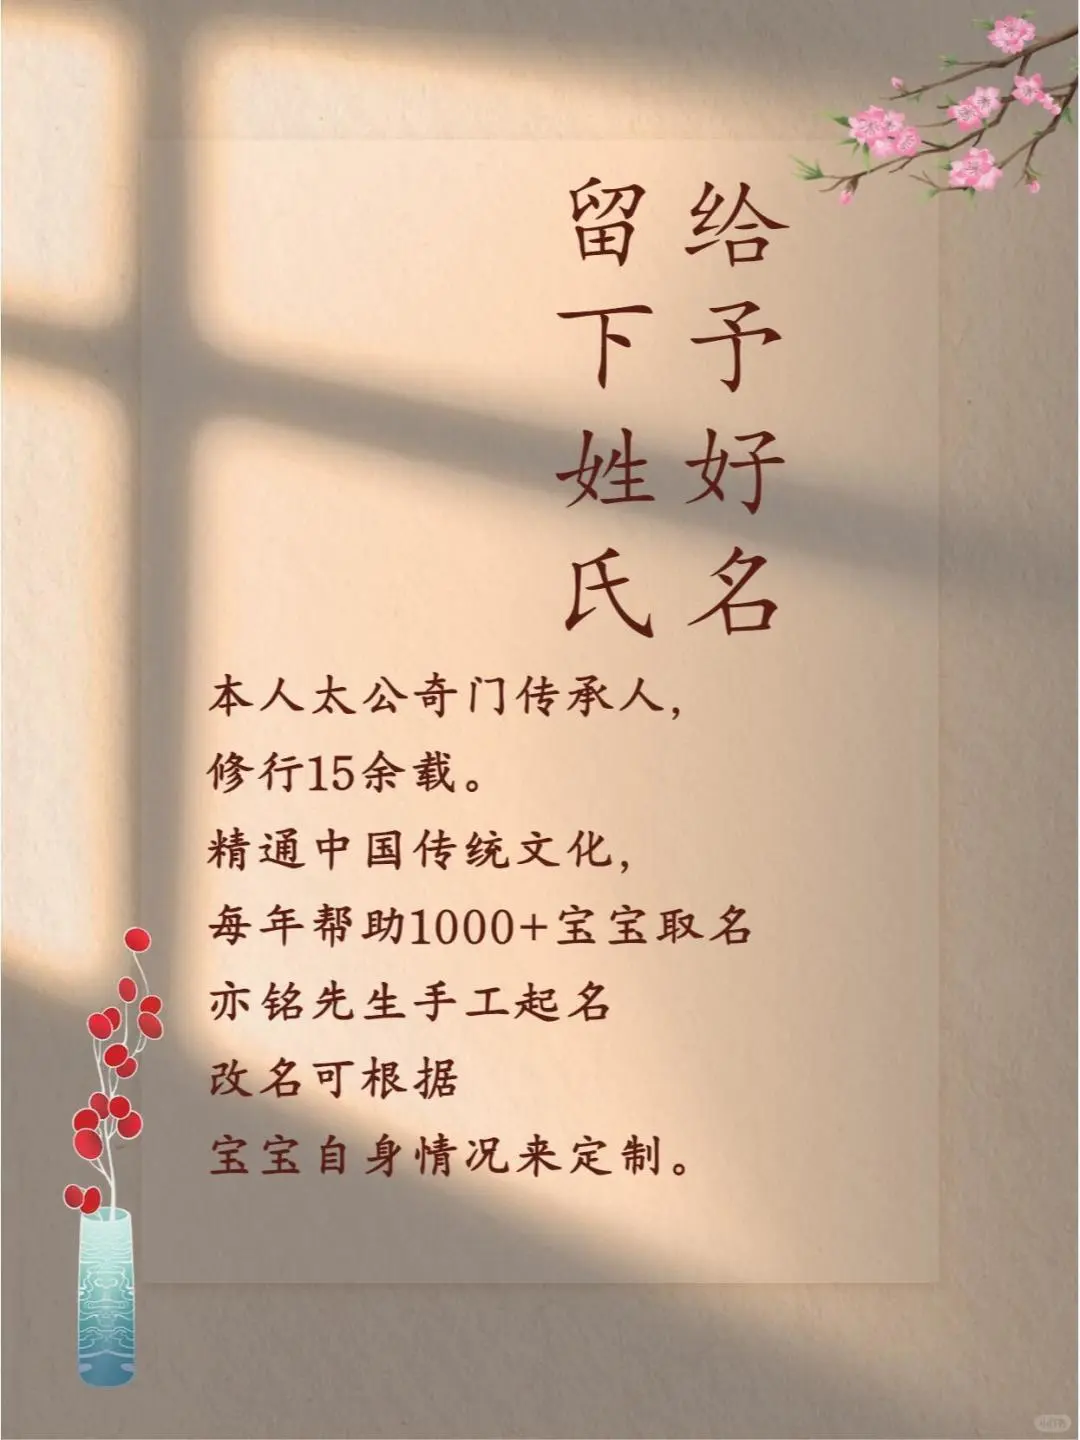 给予好名
留下姓氏
本人太公奇门传承人,
修行15余载。
精通中国传统文化,
每年帮助1000+宝宝取名
亦铭先生手工起名
改名可根据
宝宝自身情况来定制。
小红书